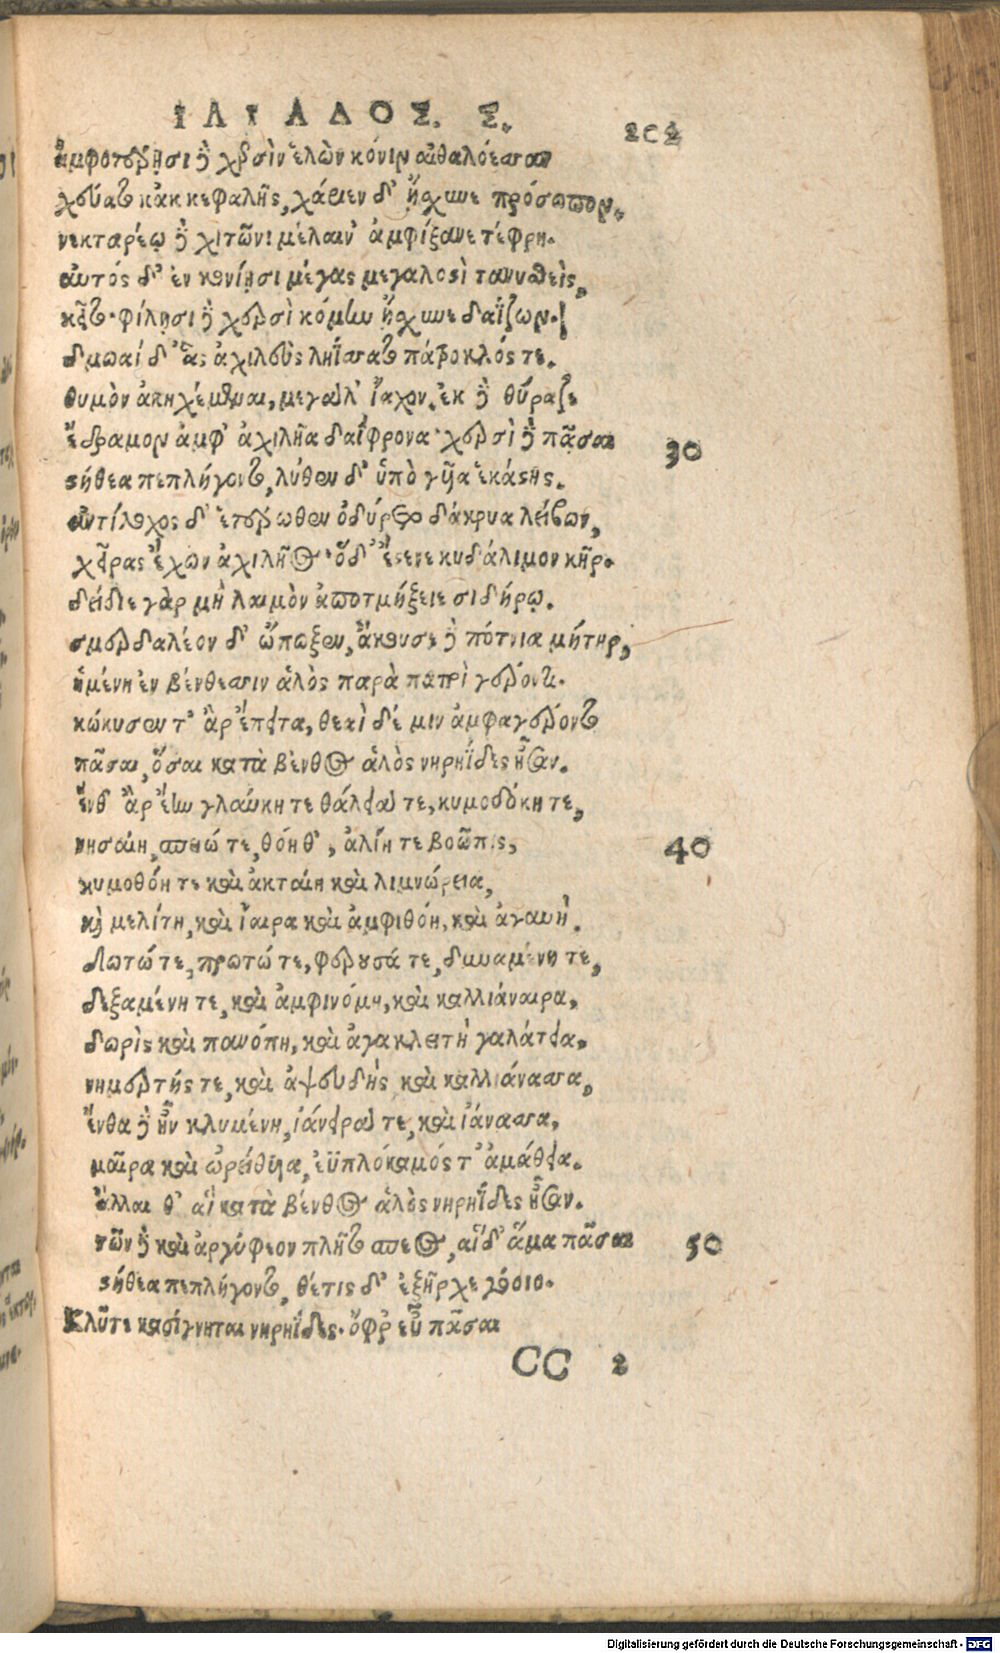 ΙΛΙΑΔΟΣ. Σ. 202
ἀμφοτέρῃσι δὲ χερσὶν ἑλὼν κόνιν αἰθαλόεσσαν
χεύατο κἀκ κεφαλῆς, χάριεν δ' ᾔσχυνε πρόσωπον.
νεκταρέῳ δὲ χιτῶνι μέλαιν' ἀμφίζανε τέφρη.
αὐτὸς δ' ἐν κονίῃσι μέγας μεγαλωστὶ τανυσθεὶς,
κεῖτο. φίλῃσι δὲ χερσὶ κόμην ᾔσχυνε δαΐζων.
δμωαί δ' ἃς ἀχιλεὺς ληΐσσατο πάτροκλός τε.
θυμὸν ἀκηχέμεναι, μεγάλ' ἴαχον. ἐκ δὲ θύραζε
ἔδραμον ἀμφ' ἀχιλῆα δαΐφρονα· χερσὶ δὲ πᾶσαι 30
στήθεα πεπλήγοντο, λύθεν δ' ὑπὸ γυῖα ἑκάστης.
ἀντίλοχος δ' ἑτέρωθεν ὀδύρετο δάκρυα λείβων,
χεῖρας ἔχων ἀχιλῆος· ὅδ' ἔστενε κυδάλιμον κῆρ.
δείδιε γὰρ μὴ λαιμὸν ἀποτμήξειε σιδήρῳ.
σμερδαλέον δ' ᾤμωξεν, ἄκουσε δὲ πότνια μήτηρ,
ἡμένη ἐν βένθεσσιν ἁλὸς παρὰ πατρὶ γέροντι.
κώκυσεν τ' ἂρ ἔπειτα, θεαὶ δέ μιν ἀμφαγέροντο
πᾶσαι, ὅσαι κατὰ βένθος ἁλὸς νηρηΐδες ἦσαν.
ἔνθ' ἂρ ἔην γλαύκη τε θάλειά τε, κυμοδόκη τε,
νησαίη, σπειώ τε, θόη θ', ἁλίη τε βοῶπις, 40
κυμοθόη τε καὶ ἀκταίη καὶ λιμνώρεια,
καὶ μελίτη, καὶ ἴαιρα καὶ ἀμφιθόη, καὶ ἀγαυὴ.
Δωτώ τε, πρωτώ τε, φέρουσά τε, δυναμένη τε,
δεξαμένη τε, καὶ ἀμφινόμη, καὶ καλλιάναιρα,
δωρὶς καὶ πανόπη, καὶ ἀγακλειτὴ γαλάτεια.
νημερτής τε, καὶ ἀψευδὴς καὶ καλλιάνασσα,
ἔνθα δὲ ἦν κλυμένη, ἰάνειρά τε, καὶ ἰάνασσα,
μαῖρα καὶ ὠρείθυια, ἐϋπλόκαμός τ' ἀμάθεια.
ἄλλαι θ' αἳ κατὰ βένθος ἁλὸς νηρηΐδες ἦσαν.
τῶν δὲ καὶ ἀργύφεον πλῆτο σπέος, αἳ δ' ἅμα πᾶσαι 50
στήθεα πεπλήγοντο, θέτις δ' ἐξῆρχε γόοιο.
Κλῦτε κασίγνηται νηρηΐδες. ὄφρ' εὖ πᾶσαι
CC 2
Digitalisierung gefördert durch die Deutsche Forschungsgemeinschaft - DFG